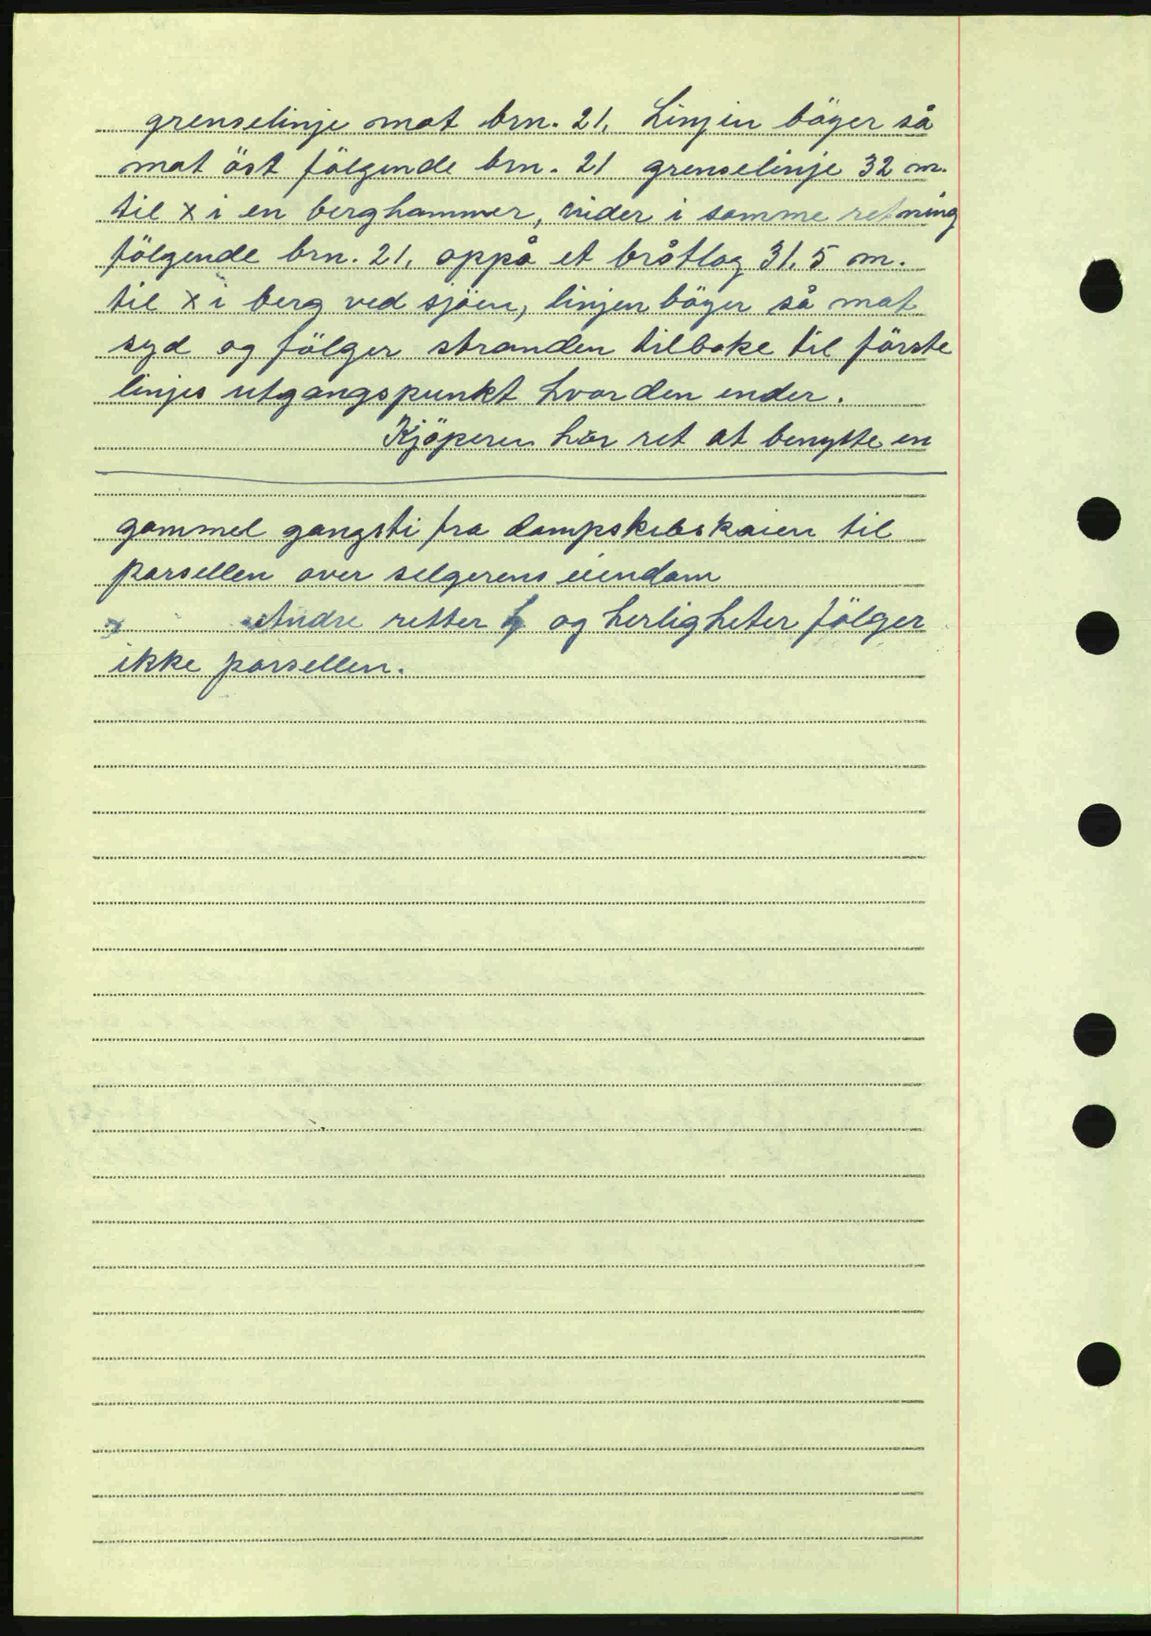 grenselinje mot brn. 21. Linjen böyer så
mot öst fölgende brn. 21 grenselinje 32 m.
til x i en berghammer, vider i samme retning
fölgende brn. 21. oppå et bråtlag 31.5 m.
til x i berg ved sjöen, linjen böyer så mot
syd og fölger stranden tilbake til förste
linjes utgangspunkt hvor den ender.
Kjöperen har ret at benytte en
gammel gangsti fra dampskibskaien til
parsellen over selgerens eiendom
x Andre retter og herligheter fölger
ikke parsellen.